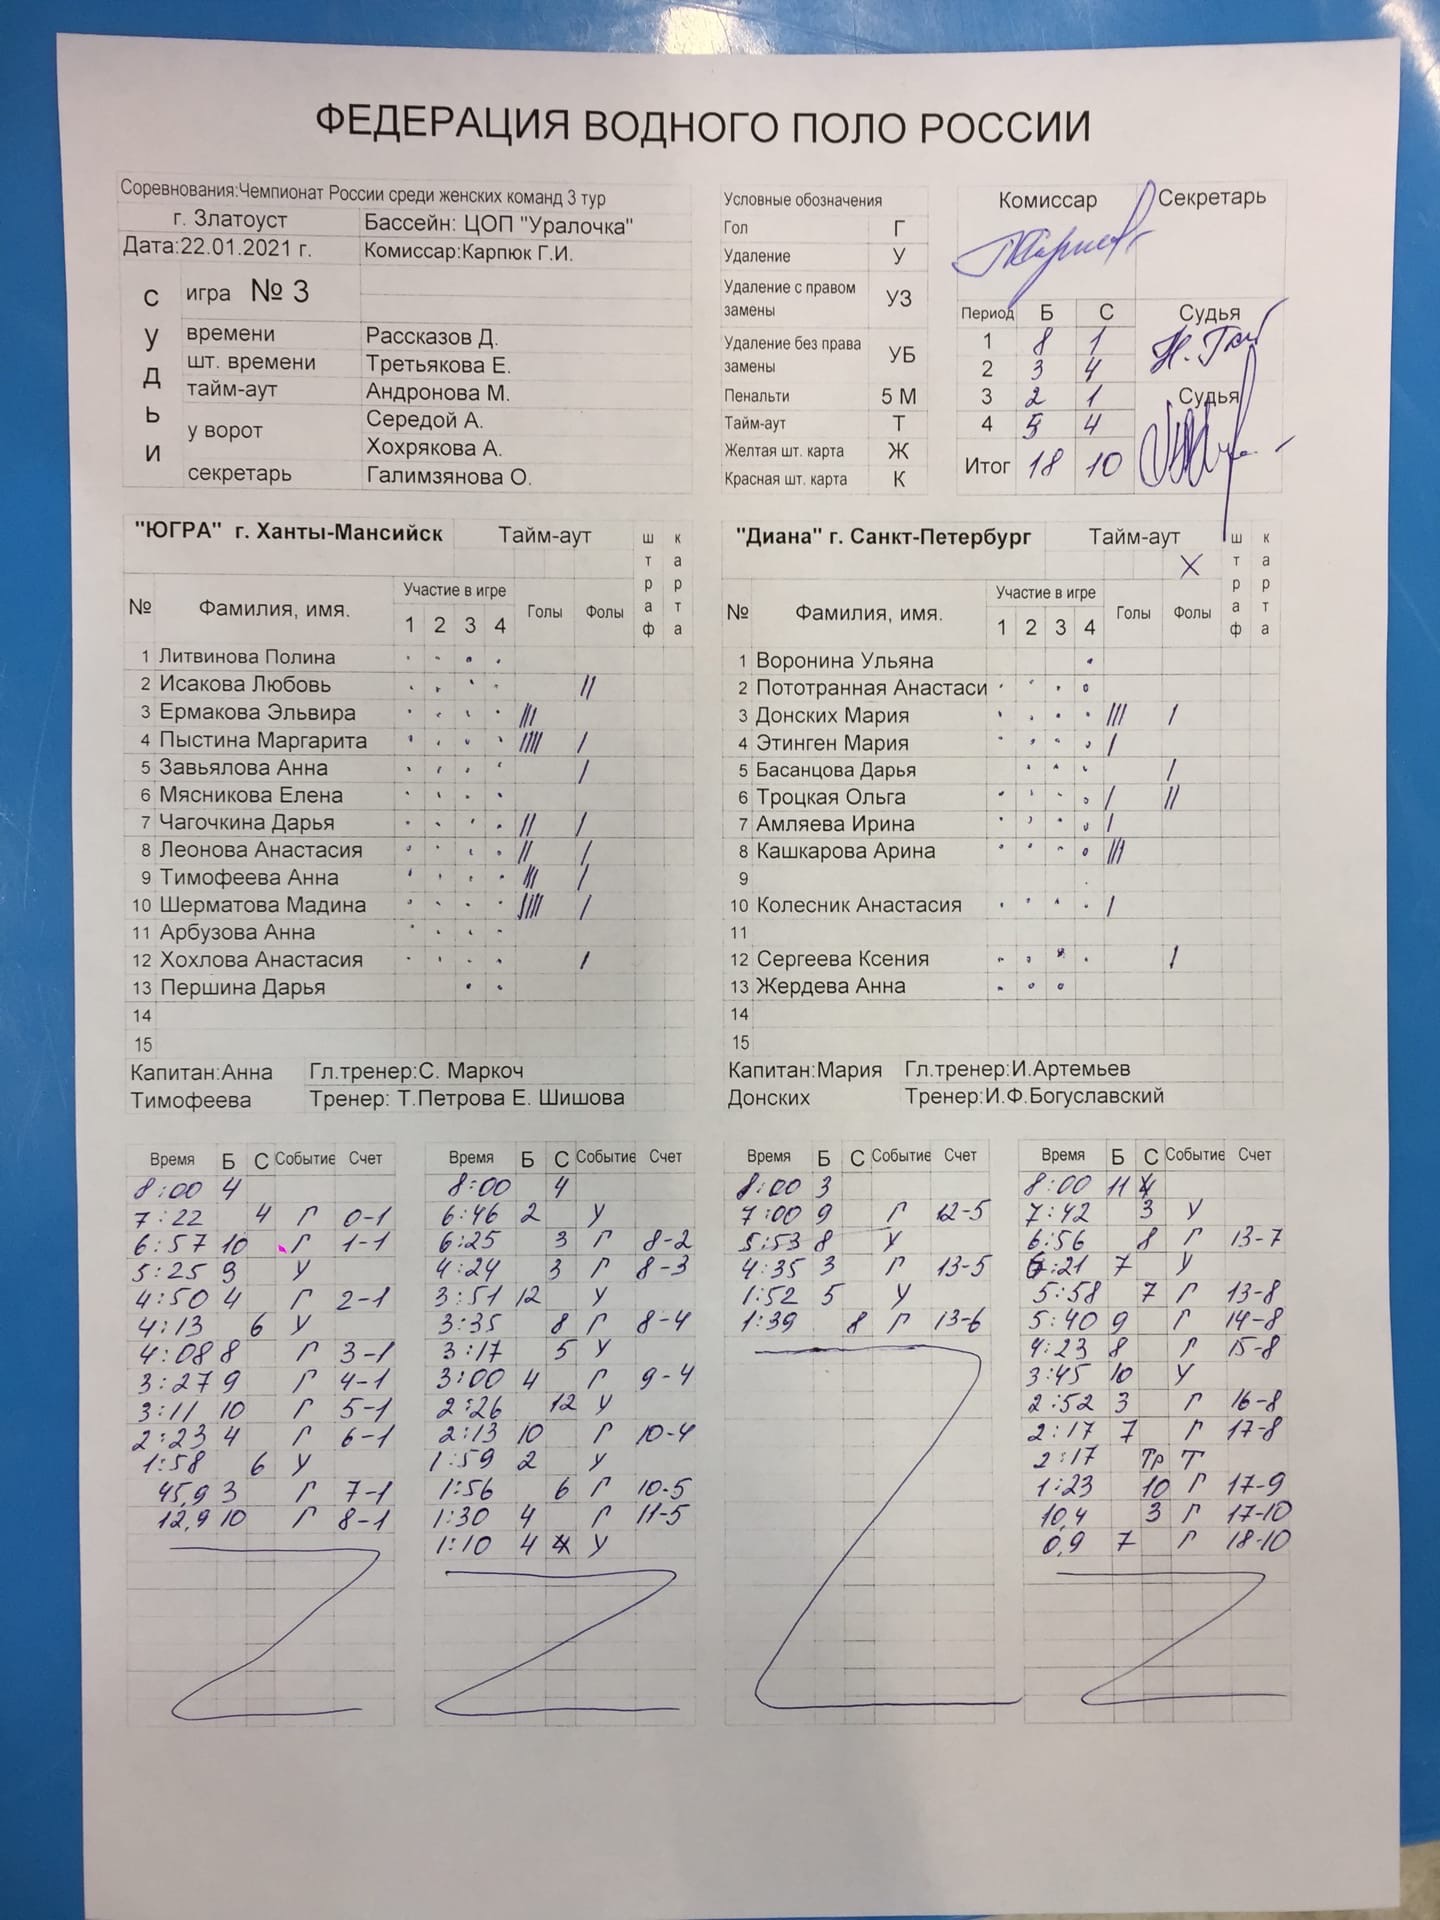 ФЕДЕРАЦИЯ ВОДНОГО ПОЛО РОССИИ
Соревнования:Чемпионат России среди женских команд 3 тур
г. Златоуст Бассейн: ЦОП "Уралочка"
Дата:22.01.2021 г. Комиссар:Карпюк Г.И.
СУДЬИ
игра № 3
времени Рассказов Д.
шт. времени Третьякова Е.
тайм-аут Андронова М.
у ворот Середой А.
Хохрякова А.
секретарь Галимзянова О.
Условные обозначения
Гол Г
Удаление У
Удаление с правом замены УЗ
Удаление без права замены УБ
Пенальти 5 М
Тайм-аут Т
Желтая шт. карта Ж
Красная шт. карта К
Комиссар Секретарь
Период Б С Судья
1 8 1
2 3 4
3 2 1 Судья
4 5 4
Итог 18 10
"ЮГРА" г. Ханты-Мансийск Тайм-аут штраф карта
№ Фамилия, имя. Участие в игре Голы Фолы
1 2 3 4
1 Литвинова Полина
2 Исакова Любовь //
3 Ермакова Эльвира ///
4 Пыстина Маргарита //// /
5 Завьялова Анна /
6 Мясникова Елена
7 Чагочкина Дарья // /
8 Леонова Анастасия // /
9 Тимофеева Анна /// /
10 Шерматова Мадина //// /
11 Арбузова Анна
12 Хохлова Анастасия /
13 Першина Дарья
14
15
Капитан:Анна Гл.тренер:С. Маркоч
Тимофеева Тренер: Т.Петрова Е. Шишова
"Диана" г. Санкт-Петербург Тайм-аут штраф карта
X
№ Фамилия, имя. Участие в игре Голы Фолы
1 2 3 4
1 Воронина Ульяна
2 Пототранная Анастаси
3 Донских Мария /// /
4 Этинген Мария /
5 Басанцова Дарья /
6 Троцкая Ольга / //
7 Амляева Ирина /
8 Кашкарова Арина ///
9
10 Колесник Анастасия /
11
12 Сергеева Ксения /
13 Жердева Анна
14
15
Капитан:Мария Гл.тренер:И.Артемьев
Донских Тренер:И.Ф.Богуславский
Время Б С Событие Счет
8:00 4
7:22 4 Г 0-1
6:57 10 Г 1-1
5:25 9 У
4:50 4 Г 2-1
4:13 6 У
4:08 8 Г 3-1
3:27 9 Г 4-1
3:11 10 Г 5-1
2:23 4 Г 6-1
1:58 6 У
45,9 3 Г 7-1
12,9 10 Г 8-1
Время Б С Событие Счет
8:00 4
6:46 2 У
6:25 3 Г 8-2
4:24 3 Г 8-3
3:51 12 У
3:35 8 Г 8-4
3:17 5 У
3:00 4 Г 9-4
2:26 12 У
2:13 10 Г 10-4
1:59 2 У
1:56 6 Г 10-5
1:30 4 Г 11-5
1:10 4 У
Время Б С Событие Счет
8:00 3
7:00 9 Г 12-5
5:53 8 У
4:35 3 Г 13-5
1:52 5 У
1:39 8 Г 13-6
Время Б С Событие Счет
8:00 11
7:42 3 У
6:56 8 Г 13-7
6:21 7 У
5:58 7 Г 13-8
5:40 9 Г 14-8
4:23 8 Г 15-8
3:45 10 У
2:52 3 Г 16-8
2:17 7 Г 17-8
2:17 Тр Т
1:23 10 Г 17-9
10,4 3 Г 17-10
0,9 7 Г 18-10